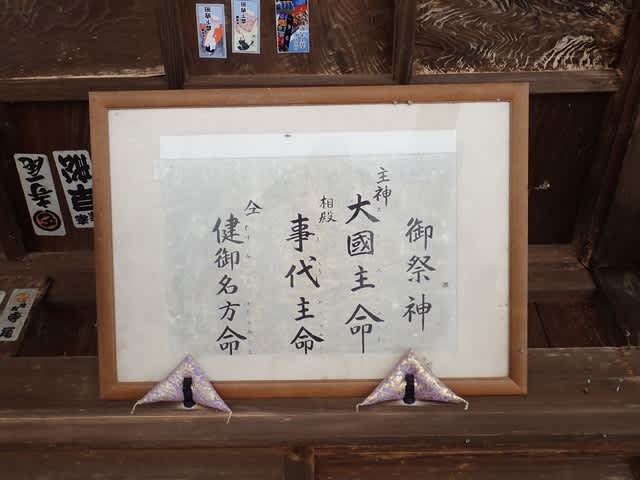 御祭神
主神 大國主命
相殿 事代主命
仝 健御名方命